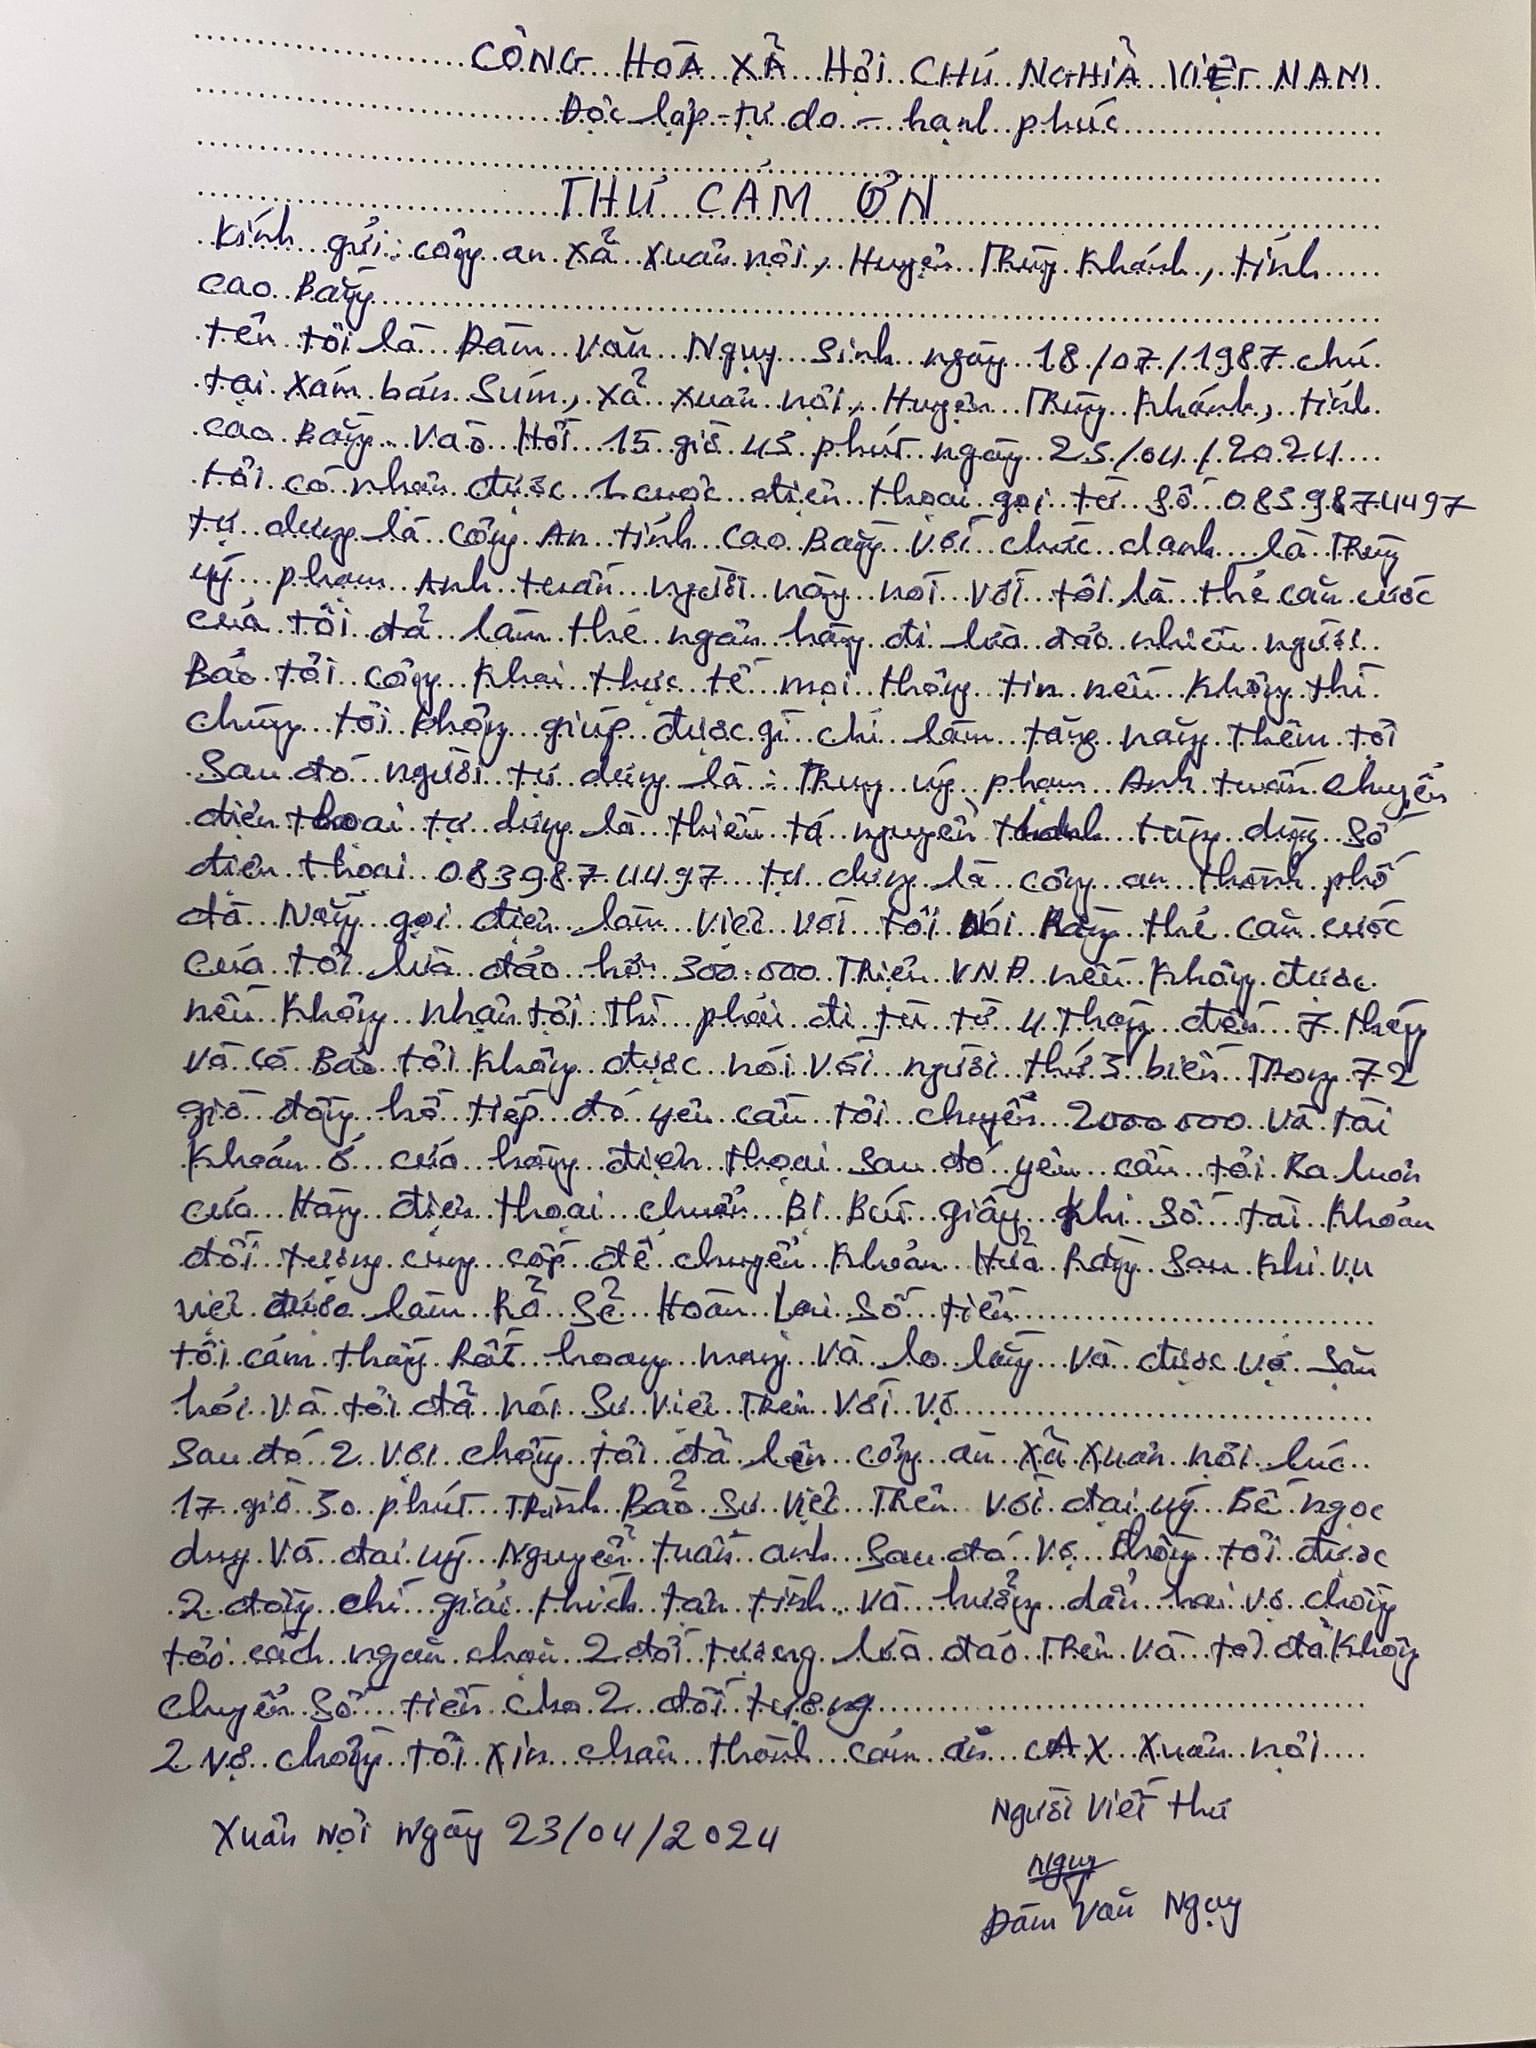 CÔNG HOÀ XẢ HỘI CHÚ NGHIÃ VIỆT NAM
Độc lập - tự do - hạnh phúc
THƯ CẢM ƠN
Kính gửi: công an xẩ xuân nội, Huyện Trùng Khánh, tỉnh
cao Bằng
tên tôi là Đàm văn Ngụy sinh ngày 18/07/1987 chú
tại xám bản Súm, xẩ xuân nội, Huyện Trùng Khánh, tỉnh
cao Bằng. Vào Hồi 15 giờ 43 phút ngày 23/04/2024
tôi có nhận được 1 cuộc điện thoại gọi từ số 0839874497
tự dưng là công An tỉnh cao Bằng với chức danh là Trung
uý phạm Anh tuấn người này nói với tôi là thẻ căn cước
của tôi đả làm thẻ ngân hàng đi lừa đảo nhiều người
Bảo tôi công khai thực tế mọi thông tin nếu không thì
chúng tôi không giúp được gì chỉ làm tăng nặng thêm tội
sau đó người tự dưng là: Trung uý phạm Anh tuấn chuyển
điện thoại tự dưng là thiếu tá nguyễn tùng dũng số
điện thoại 0839874497 tự dưng là công an thành phố
đà Nẵng gọi điện làm việc với tôi Nói Rằng thẻ căn cước
của tôi lừa đảo hơn 300.000 Triệu VNĐ nếu không được
nếu không nhận tội thì phải đi tù từ 4 tháng đến 7 tháng
và có Bảo tôi không được nói với người thứ 3 biết Trong 72
giờ đồng hồ tiếp đó yêu cầu tôi chuyển 2000000 và tài
khoản ở cửa hàng điện thoại sau đó yêu cầu tôi Ra luôn
cửa Hàng điện thoại chuẩn Bị Bút giấy ghi số tài khoản
đối tượng cung cấp để chuyển khoản Hứa Rằng sau khi vụ
việc được làm Rỏ sẻ Hoàn Lại số tiền
tôi cảm thấy Rất hoang mang và lo lắng và được vợ
hỏi và tôi đả nói sự việc Trên với vợ
sau đó 2 vợ chồng tôi đả lên công an xẩ xuân nội lúc
17 giờ 30 phút Trình Bảo sự việc Trên với đại uý Bế ngọc
duy và đại uý Nguyễn tuấn anh sau đó vợ chồng tôi được
2 đồng chí giải thích tận tình và hướng dẩn hai vợ chồng
tôi cách ngăn chặn 2 đối tượng lừa đảo Trên và tôi đả không
chuyển số tiền cho 2 đối tượng
2 vợ chồng tôi xin chân thành cảm ơn CAX xuân nội
Người viết thư
Xuân Nội Ngày 23/04/2024
nguy
Đàm Văn Ngụy